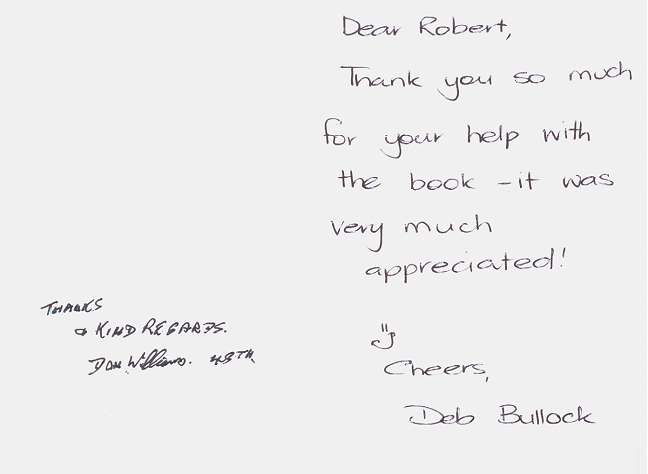 Dear Robert,
Thank you so much
for your help with
the book - it was
very much
appreciated!
Cheers,
Deb Bullock
THANKS
& KIND REGARDS.
Don Williams. 43TH